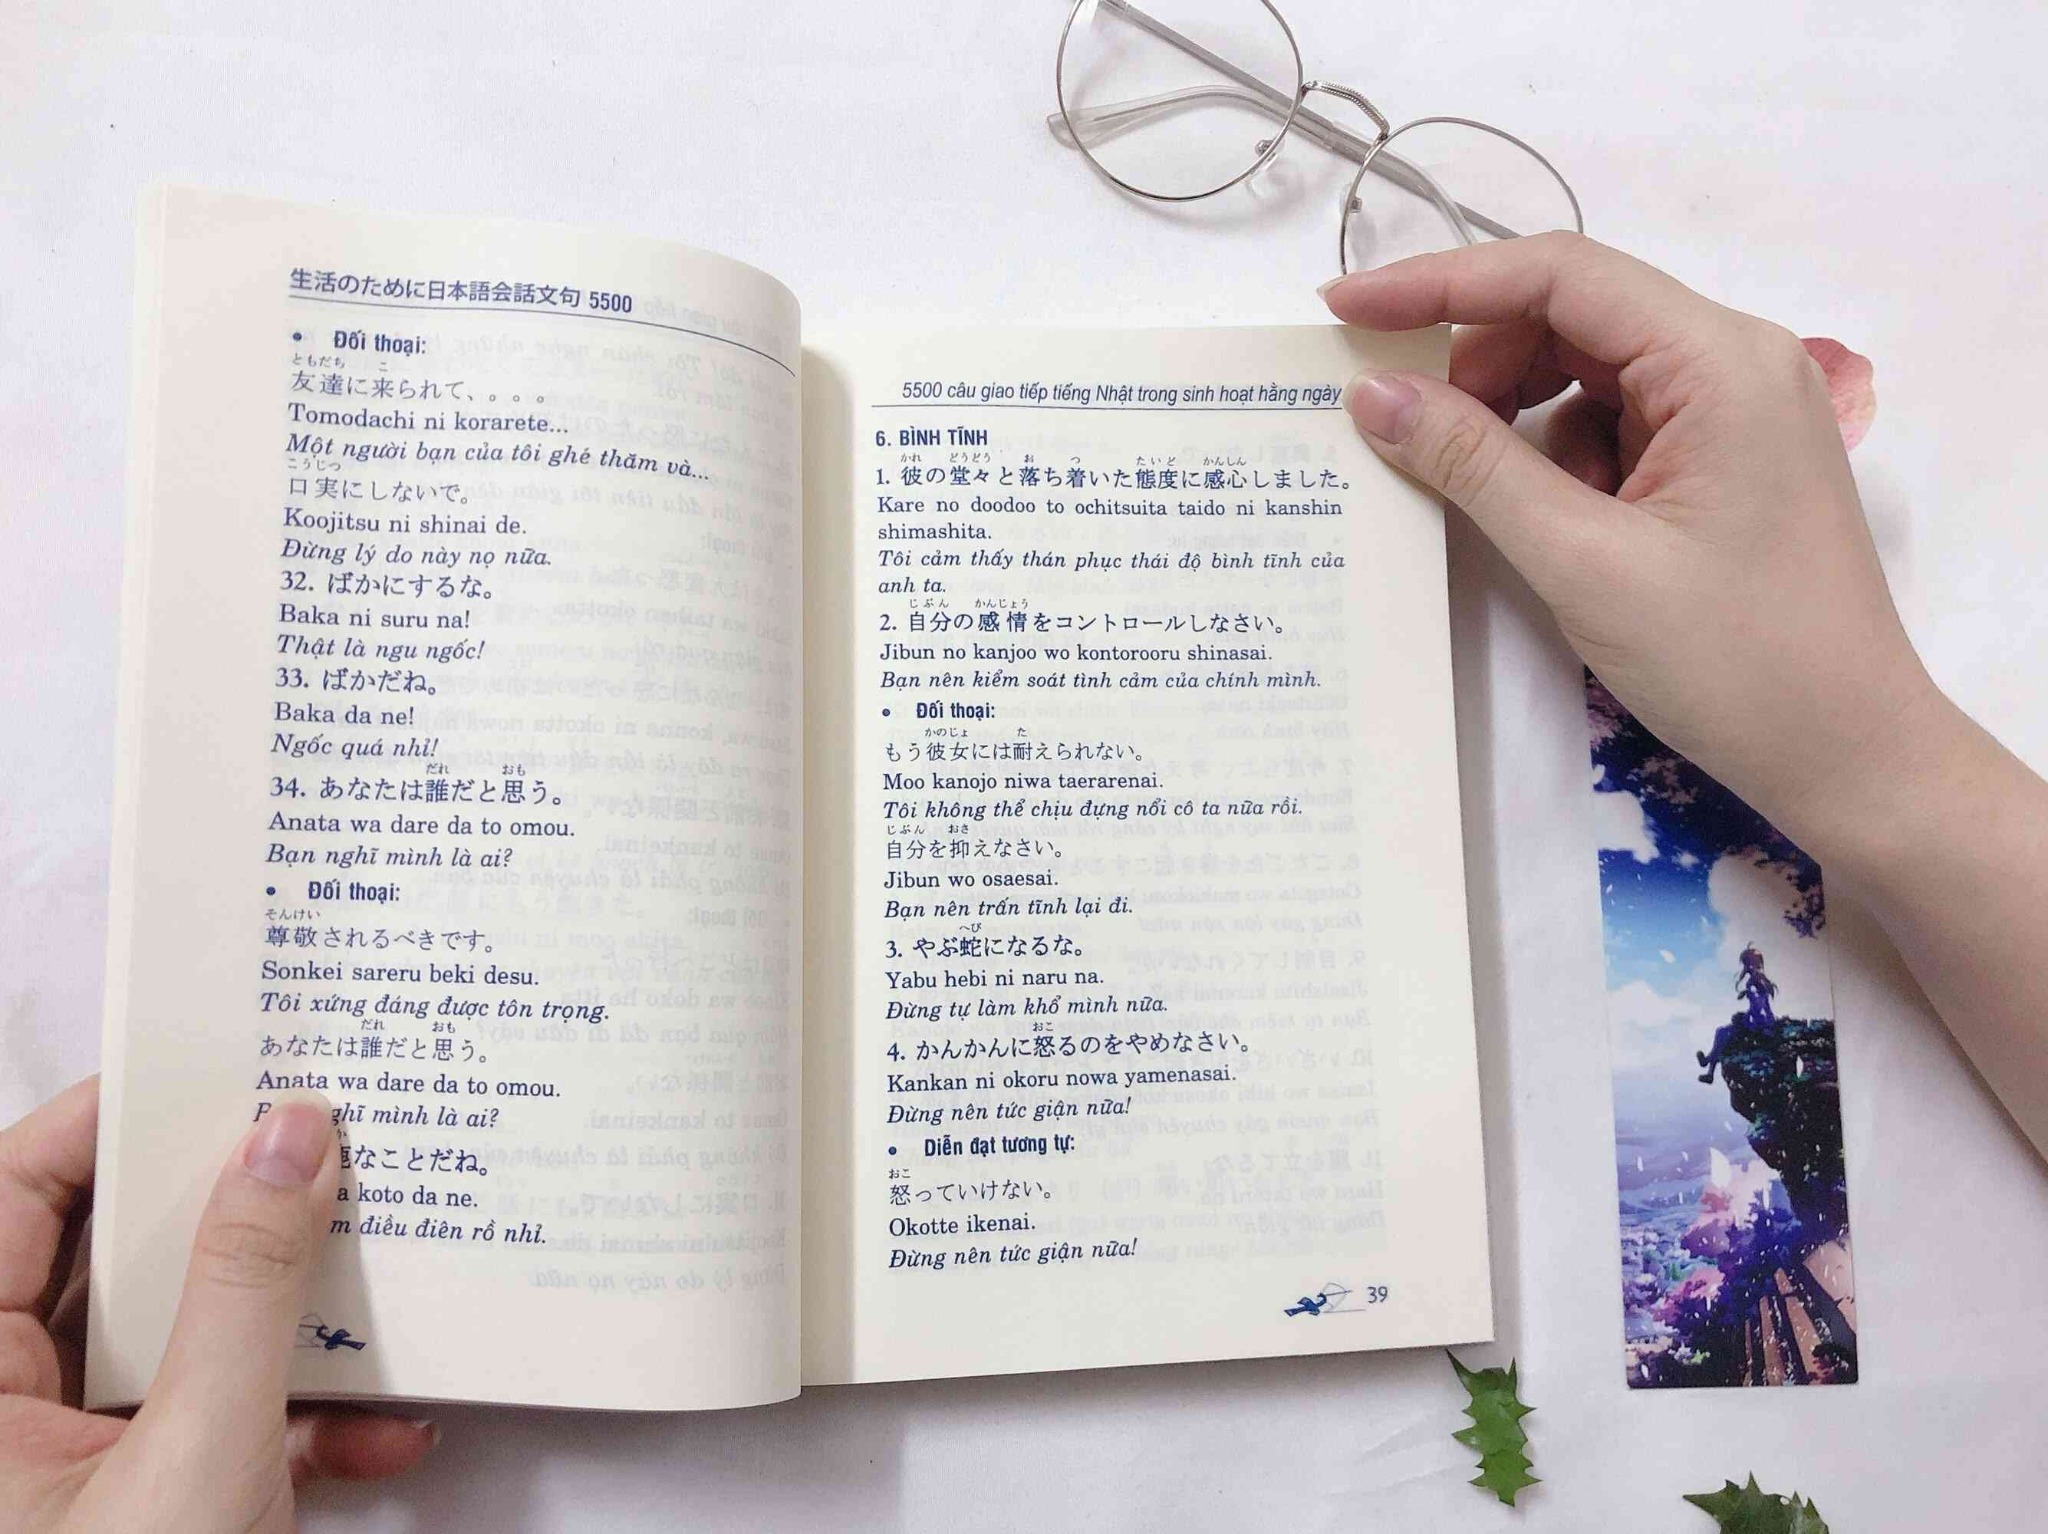 生活のために日本語会話文句 5500
• Đối thoại:
ともだち こ
友達に来られて、。。。。
Tomodachi ni korarete...
Một người bạn của tôi ghé thăm và...
こうじつ
口実にしないで。
Koojitsu ni shinai de.
Đừng lý do này nọ nữa.
32. ばかにするな。
Baka ni suru na!
Thật là ngu ngốc!
33. ばかだね。
Baka da ne!
Ngốc quá nhỉ!
だれ おも
34. あなたは誰だと思う。
Anata wa dare da to omou.
Bạn nghĩ mình là ai?
• Đối thoại:
そんけい
尊敬されるべきです。
Sonkei sareru beki desu.
Tôi xứng đáng được tôn trọng.
だれ おも
あなたは誰だと思う。
Anata wa dare da to omou.
ghĩ mình là ai?
か
なことだね。
a koto da ne.
m điều điên rồ nhỉ.
5500 câu giao tiếp tiếng Nhật trong sinh hoạt hằng ngày
6. BÌNH TĨNH
かれ どうどう お つ たいど かんしん
1. 彼の堂々と落ち着いた態度に感心しました。
Kare no doodoo to ochitsuita taido ni kanshin
shimashita.
Tôi cảm thấy thán phục thái độ bình tĩnh của
anh ta.
じぶん かんじょう
2. 自分の感情をコントロールしなさい。
Jibun no kanjoo wo kontorooru shinasai.
Bạn nên kiểm soát tình cảm của chính mình.
• Đối thoại:
かのじょ た
もう彼女には耐えられない。
Moo kanojo niwa taerarenai.
Tôi không thể chịu đựng nổi cô ta nữa rồi.
じぶん おさ
自分を抑えなさい。
Jibun wo osaesai.
Bạn nên trấn tĩnh lại đi.
へび
3. やぶ蛇になるな。
Yabu hebi ni naru na.
Đừng tự làm khổ mình nữa.
おこ
4. かんかんに怒るのをやめなさい。
Kankan ni okoru nowa yamenasai.
Đừng nên tức giận nữa!
• Diễn đạt tương tự:
おこ
怒っていけない。
Okotte ikenai.
Đừng nên tức giận nữa!
39